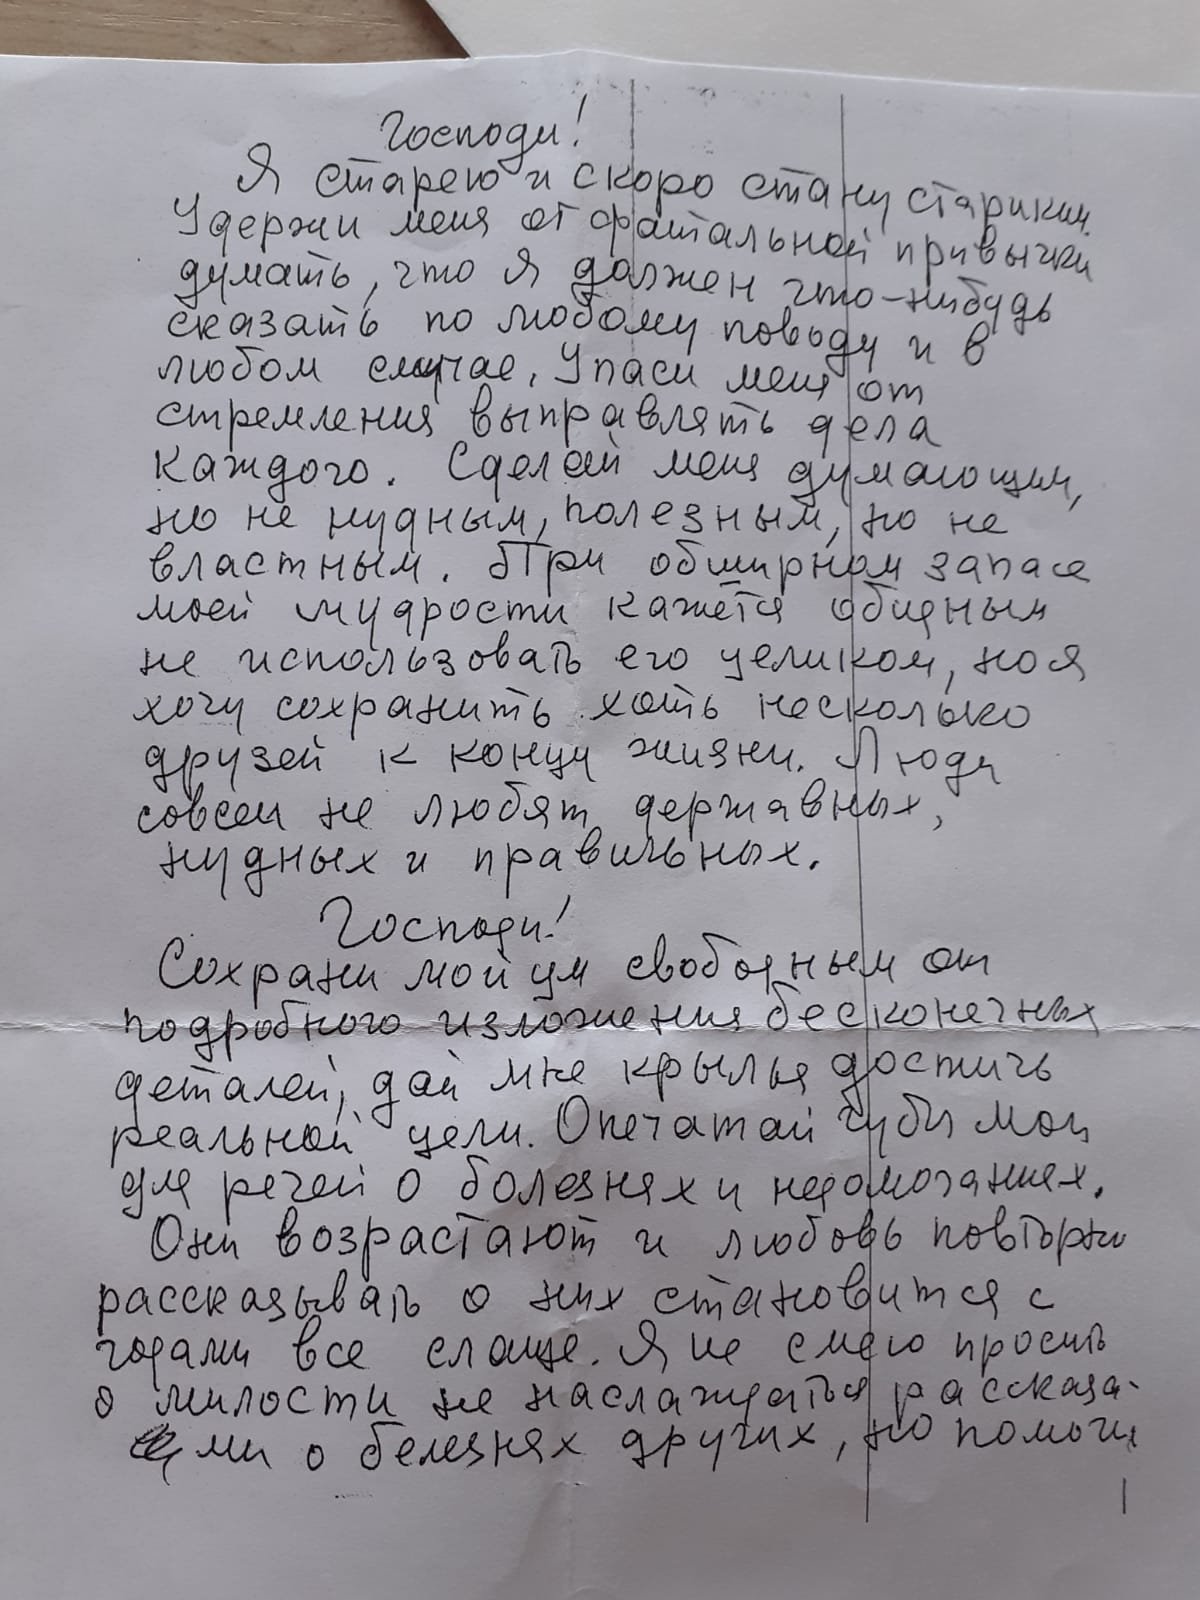 Господи!
Я старею и скоро стану стариком.
Удержи меня от фатальной привычки
думать, что я должен что-нибудь
сказать по любому поводу и в
любом случае. Упаси меня от
стремления выправлять дела
каждого. Сделай меня думающим,
но не нудным, полезным, но не
властным. При обширном запасе
моей мудрости кажется обидным
не использовать его целиком, но я
хочу сохранить хоть несколько
друзей к концу жизни. Люди
совсем не любят державных,
нудных и правильных.
Господи!
Сохрани мой ум свободным от
подробного изложения бесконечных
деталей, дай мне крылья достичь
реальной цели. Опечатай губы мои
для речей о болезнях и недомоганиях.
Они возрастают и любовь повторно
рассказывать о них становится с
годами все слаще. Я не смею просить
о милости не наслаждаться рассказа-
ми о белезнях других, но помоги
1